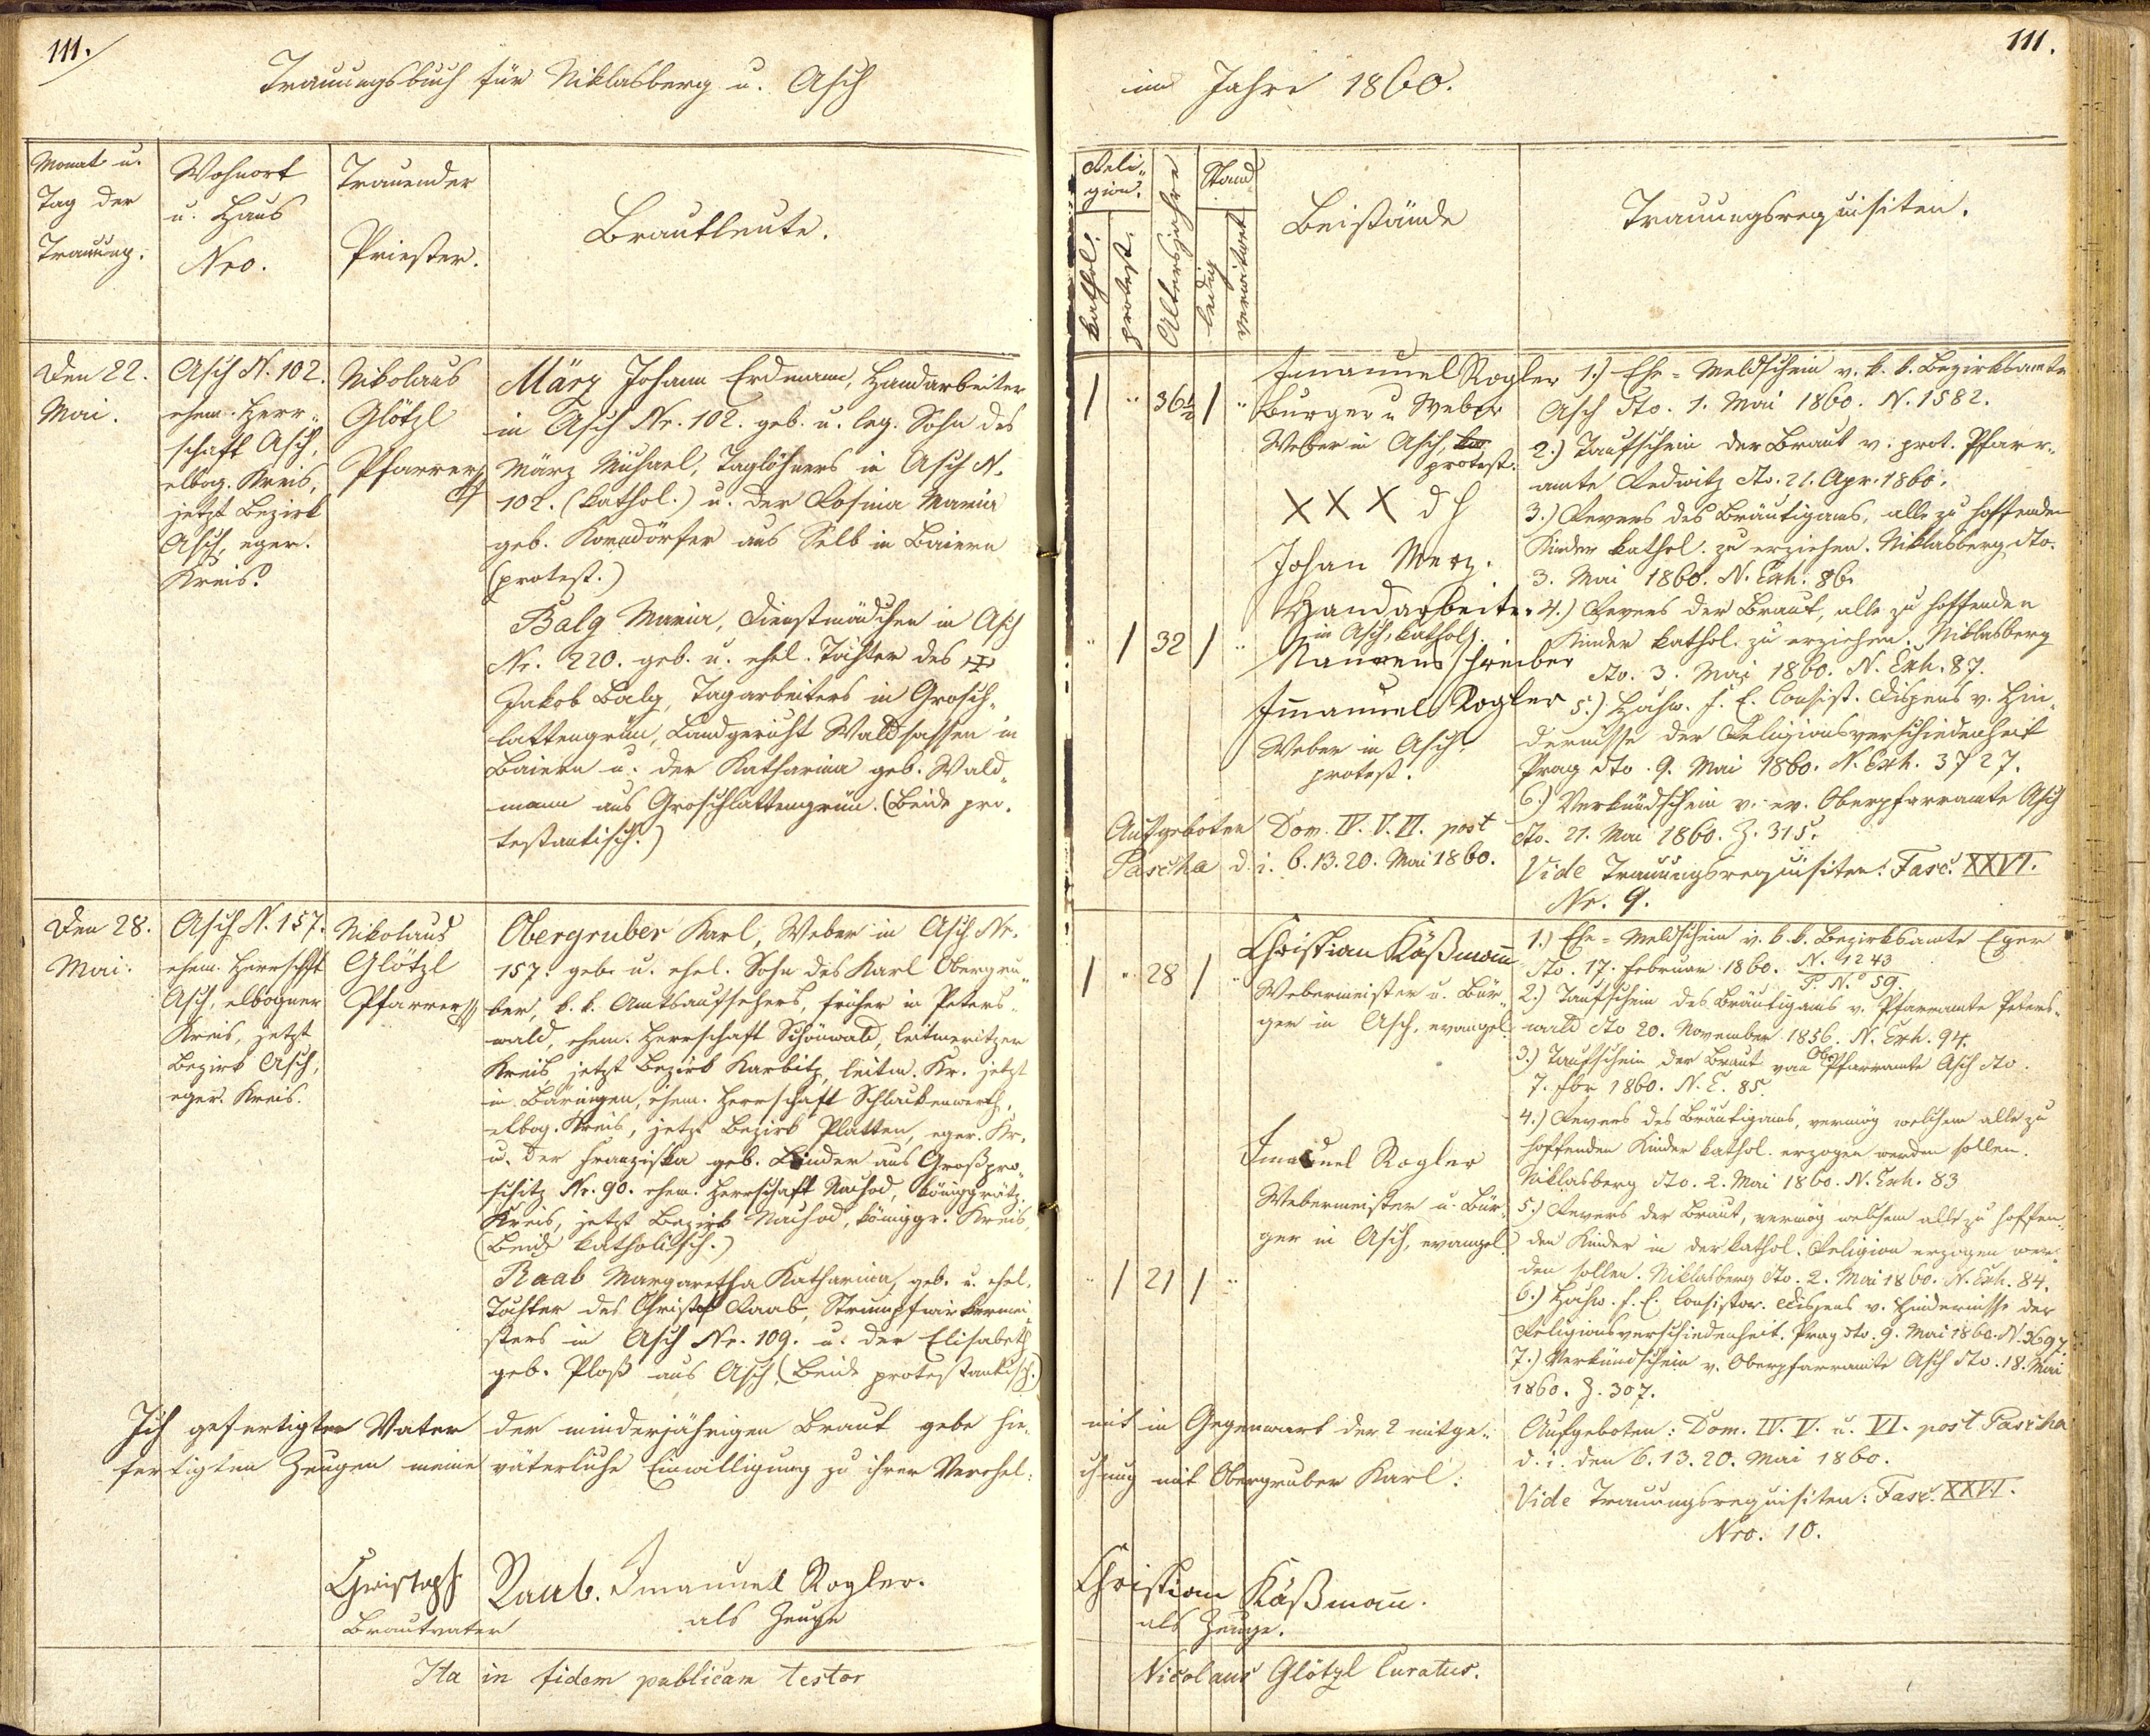 111.
Trauungsbuch für Niklasberg u. Asch
Monat u.
Tag der
Trauung.
Wohnort
u. Haus
Nro.
Trauender
Priester.
Brautleute.
Den 22.
Mai.
Asch N. 102.
ehem. Herr-
schaft Asch,
elbog. Kreis,
jetzt Bezirk
Asch, eger.
Kreis.
Nikolaus
Glötzl
Pfarrer
März Johann Erdmann, Handarbeiter
in Asch Nr. 102. geb. u. leg. Sohn des
März Michael, Taglöhners in Asch N.
102. (kathol.) u. der Rosina Maria
geb. Korndörfer aus Selb in Baiern
(protest.)
Balg Maria, Dienstmädchen in Asch
Nr. 220. geb. u. ehel. Tochter des
Jakob Balg, Tagarbeiters in Grosch-
lattengrün, Landgericht Waldsassen in
Baiern u. der Katharina geb. Wald-
mann aus Groschlattengrün. (Beide pro-
testantisch.)
Den 28.
Mai.
Asch N. 157.
ehem. Herrschft
Asch, elbogner
Kreis, jetzt
Bezirk Asch,
eger. Kreis.
Nikolaus
Glötzl
Pfarrer
Obergruber Karl, Weber in Asch Nr.
157. geb. u. ehel. Sohn des Karl Obergru-
ber, k. k. Amtsaufsehers, früher in Peters-
wald, ehem. Herrschaft Schönwald, leitmeritzer
Kreis jetzt Bezirk Karbitz, leitm. Kr. jetzt
in Bäringen, ehem. Herrschaft Schlackenwerth,
elbog. Kreis, jetzt Bezirk Platten, eger. Kr.
u. der Franziska geb. Linder aus Großpro-
schitz Nr. 90. ehem. Herrschaft Nachod, königgrätz.
Kreis, jetzt Bezirk Nachod, königgr. Kreis,
(Beide katholisch.)
Raab Margaretha Katharina, geb. u. ehel.
Tochter des Christof Raab, Strumpfwirkermei-
sters in Asch Nr. 109. u. der Elisabeth
geb. Ploß aus Asch (Beide protestantisch.)
Ich gefertigter Vater der minderjährigen Braut gebe hie-
fertigten Zeugen meine väterliche Einwilligung zu ihrer Verehel-
Christoph Raab. Imanuel Rogler.
Brautvater als Zeuge
Ita in fidem publicam testor
111.
im Jahre 1860.
Reli-
gion.
kathol.
protest.
Altersjahre
Stand
ledig
verwitwet
Beistände
Trauungsrequisiten.
1 " 36½ 1 "
Immanuel Rogler
Burger u Weber
Weber in Asch,
protest.
XXX d H
Johan Merz.
Handarbeiter
in Asch, kathol.
" 1 32 1 "
Namensschreiber
Immanuel Rogler
Weber in Asch.
protest.
Aufgeboten Dom. IV. V. VI. post
Pascha d. i. 6. 13. 20. Mai 1860.
1.) Ehe-Meldschein v. k. k. Bezirksamte
Asch dto. 1. Mai 1860. N. 1582.
2.) Taufschein der Braut v. prot. Pfarr-
amte Redwitz dto. 21. Apr. 1860.
3.) Revers des Bräutigams, alle zu hoffenden
Kinder kathol. zu erziehen. Niklasberg dto.
3. Mai 1860. N. Exh. 86.
4.) Revers der Braut, alle zu hoffenden
Kinder kathol. zu erziehen. Niklasberg
dto. 3. Mai 1860. N. Exh. 87.
5.) Hochw. f. E. Consist. Dispens v. Hin-
dernisse der Religionsverschiedenheit
Prag dto. 9. Mai 1860. N. Exh. 3727.
6.) Verkündschein v. ev. Oberpfarramte Asch
dto. 21. Mai 1860. Z. 315.
Vide Trauungsrequisiten: Fasc. XXVI.
Nr. 9.
1 " 28 1 "
Christian Käßmañ
Webermeister u. Bür-
ger in Asch, evangel.
Imanuel Rogler
Webermeister u. Bür-
ger in Asch, evangel.
" 1 21 1 "
1.) Ehe-Meldschein v. k. k. Bezirksamte Eger
dto. 17. Februar 1860. N. 1243
P. No 59.
2.) Taufschein des Bräutigams v. Pfarramte Peters-
wald dto 20. November 1856. N. Exh. 94.
3.) Taufschein der Braut von Ob. Pfarramte Asch dto.
7. fbr 1860. N. E. 85.
4.) Revers des Bräutigams, vermög welchem alle zu
hoffenden Kinder kathol. erzogen werden sollen.
Niklasberg dto. 2. Mai 1860. N. Exh. 83
5.) Revers der Braut, vermög welchem alle zu hoffen-
den Kinder in der kathol. Religion erzogen wer-
den sollen. Niklasberg dto. 2. Mai 1860. N. Exh. 84.
6.) Hochw. f. E. Consistor. Dispens v. Hindernisse der
Religionsverschiedenheit. Prag dto. 9. Mai 1860. N. 3697.
7.) Verkündschein v. Oberpfarramte Asch dto. 18. Mai
1860. Z. 307.
mit in Gegenwart der 2 mitge-
chung mit Obergruber Karl.
Aufgeboten: Dom. IV. V. u. VI. post Pascha
d. i. den 6. 13. 20. Mai 1860.
Vide Trauungsrequisiten: Fasc. XXVI.
Nro. 10.
Christian Käßmañ.
als Zeuge.
Nicolaus Glötzl Curatus.